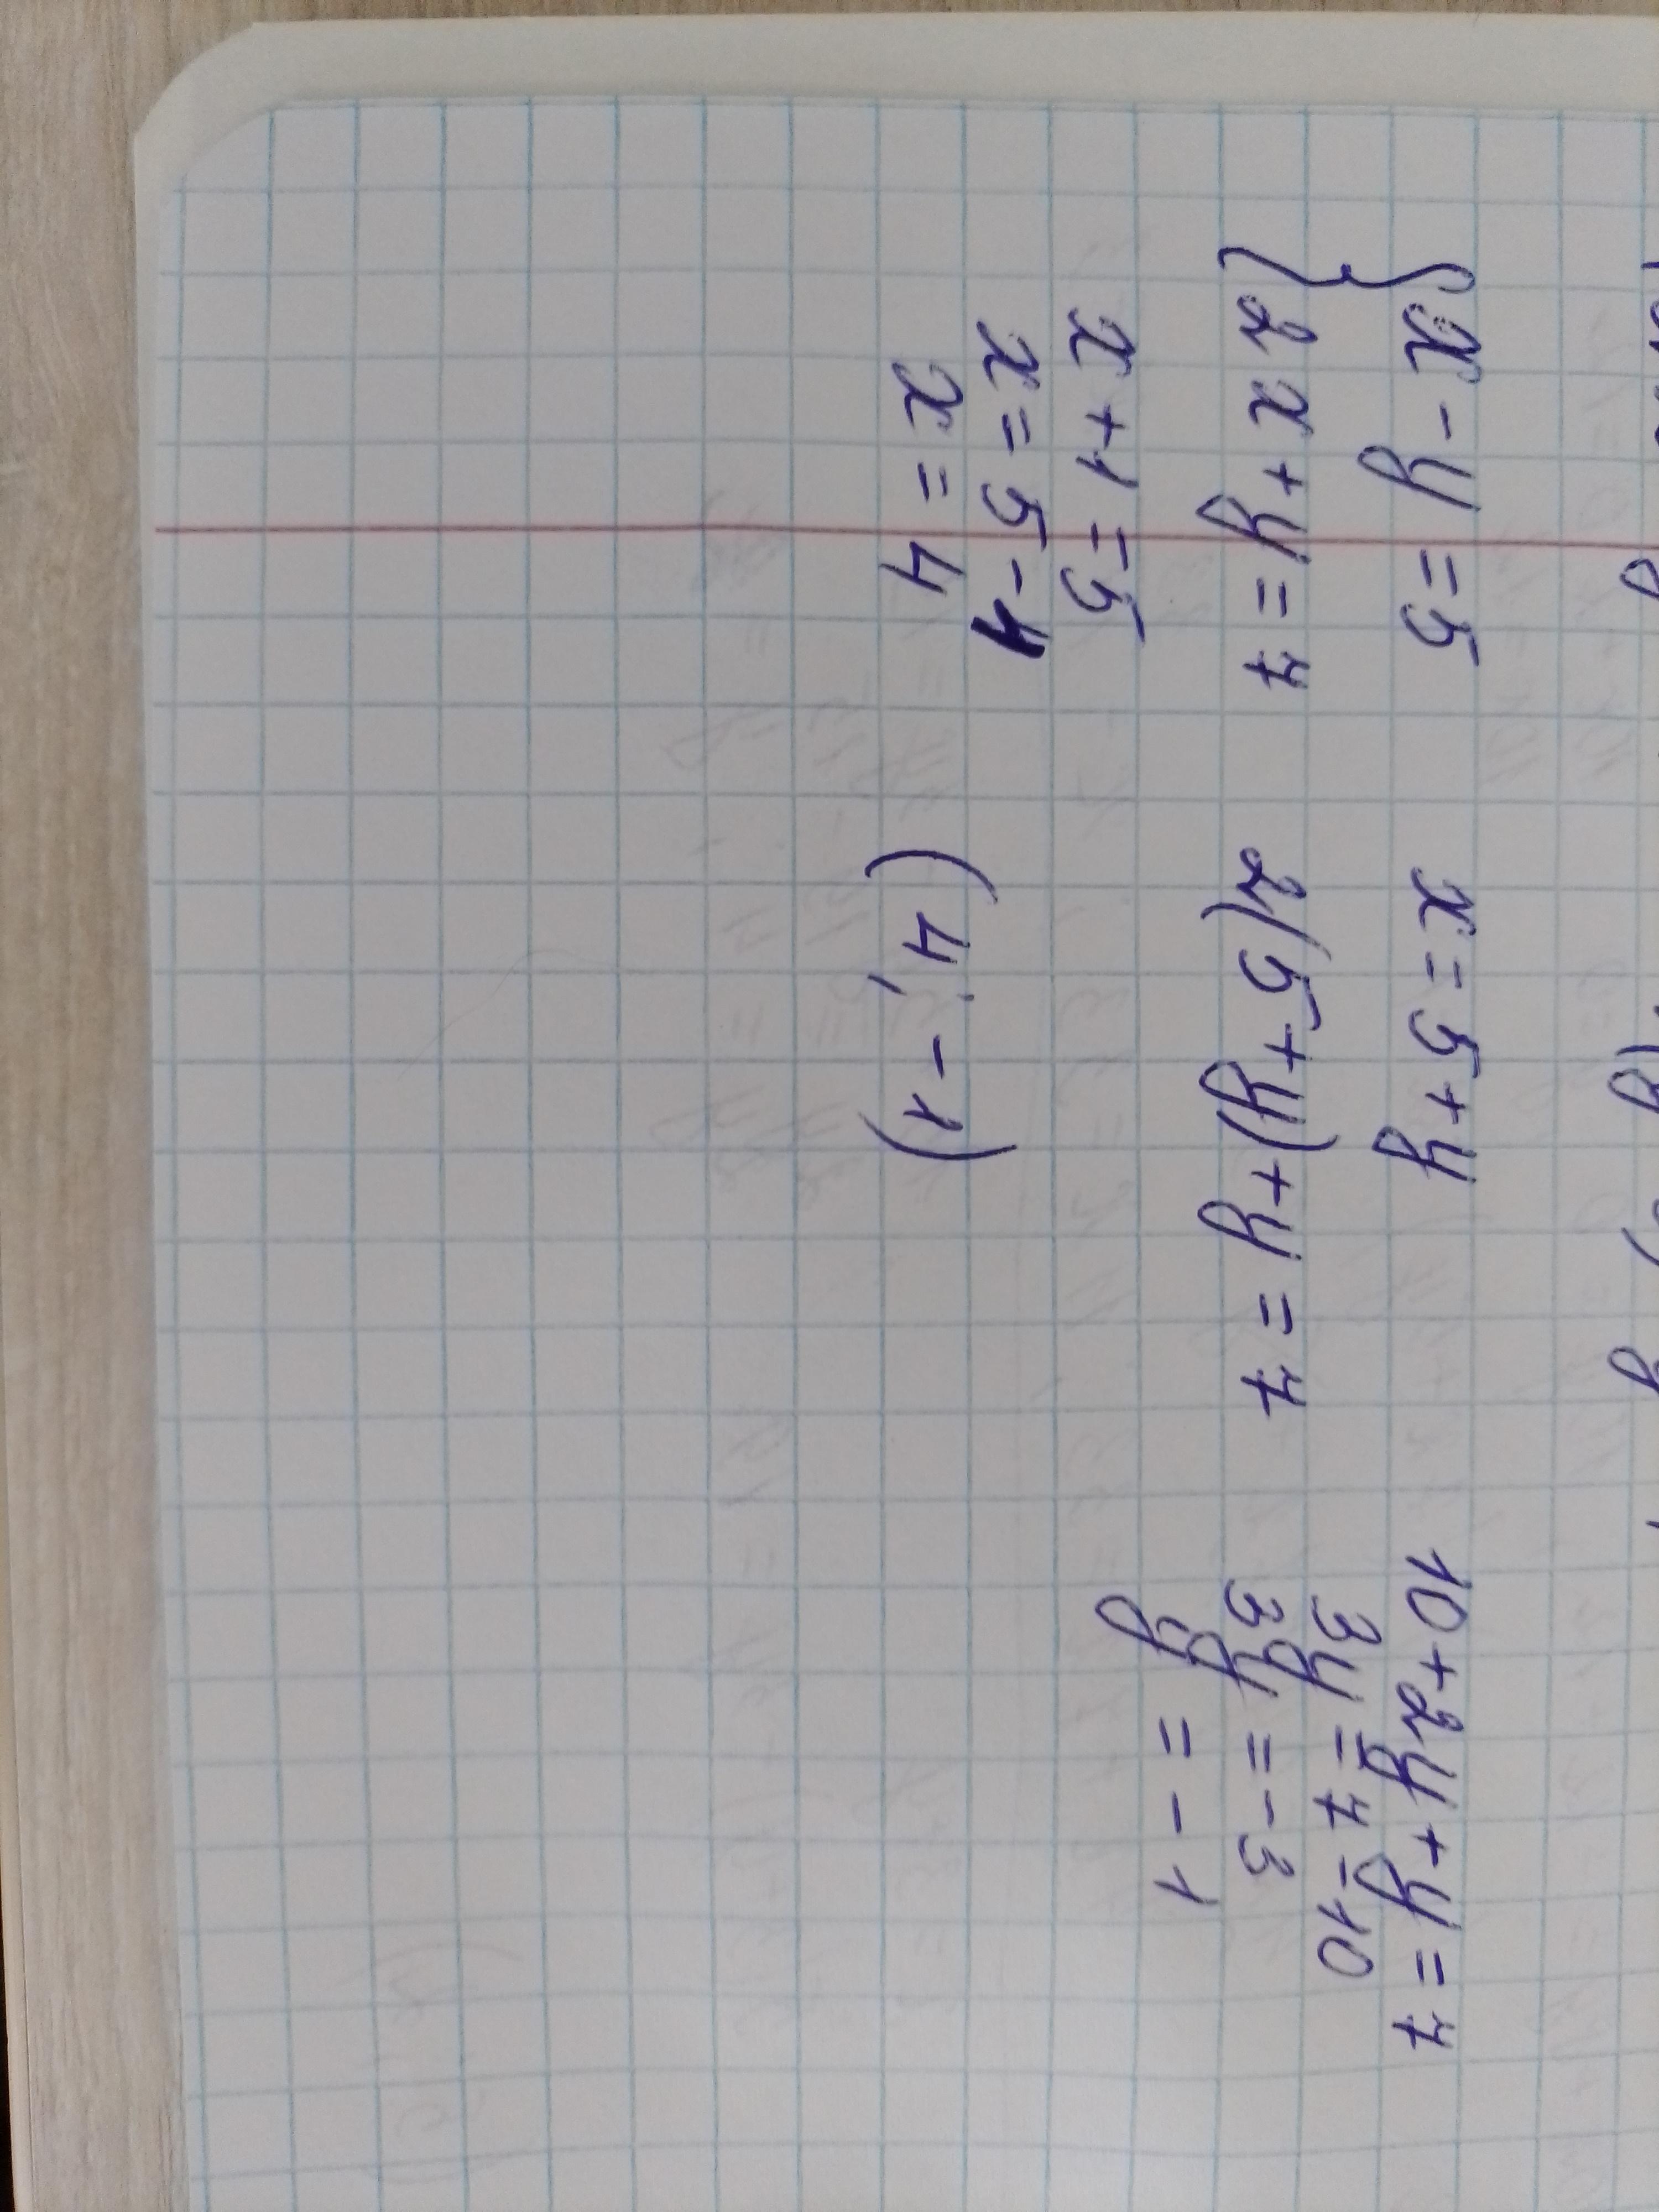 x - y = 5
2x + y = 7
x + 1 = 5
x = 5 - 1
x = 4
x = 5 + y
2(5 + y) + y = 7
(4; -1)
10 + 2y + y = 7
3y = 7 - 10
3y = -3
y = -1